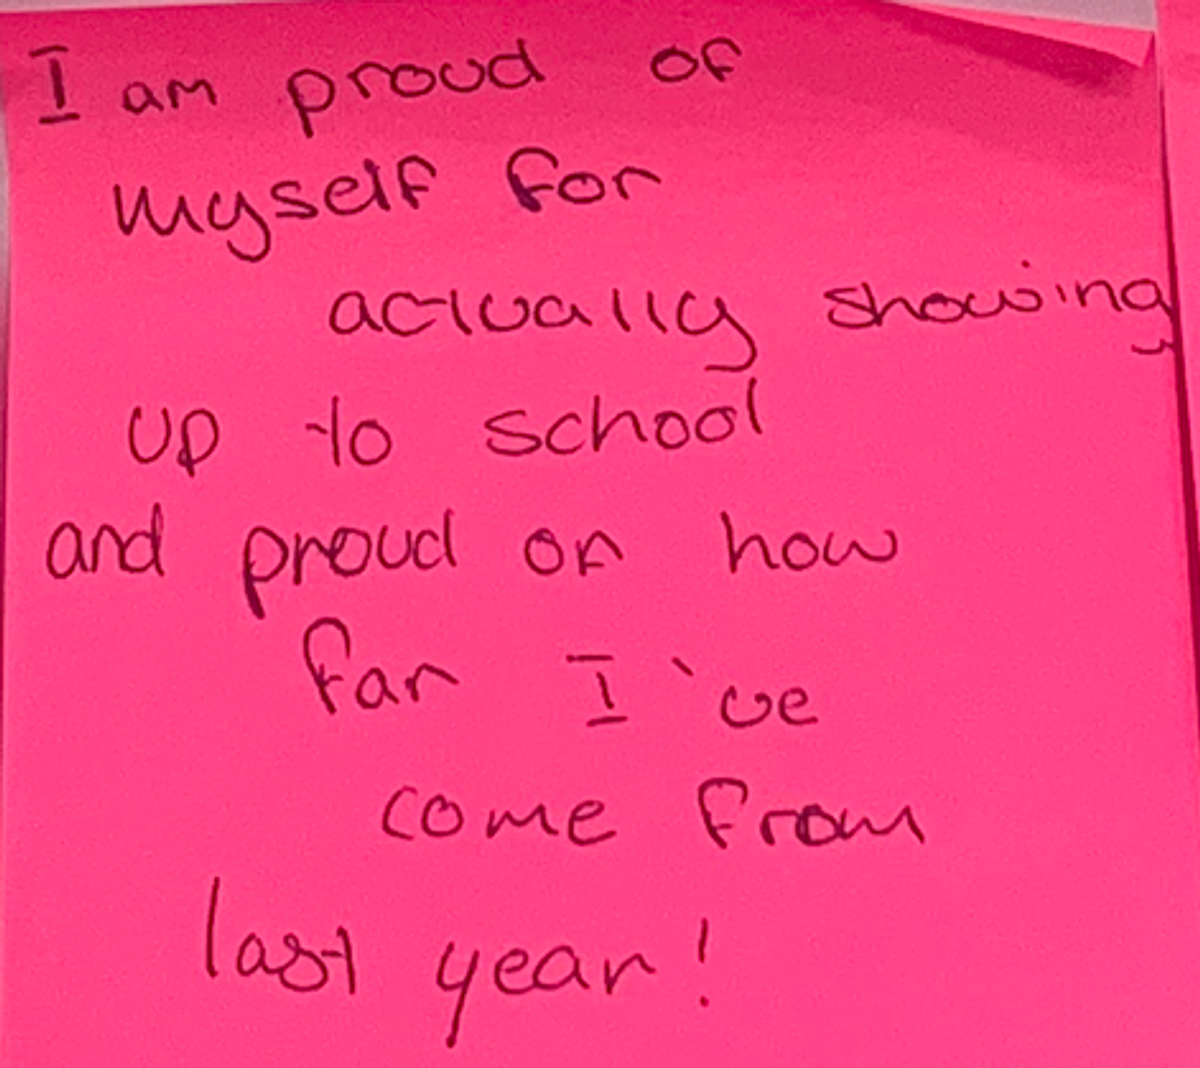 I am proud of
myself for
actually showing
up to school
and proud on how
far I've
come from
last year!